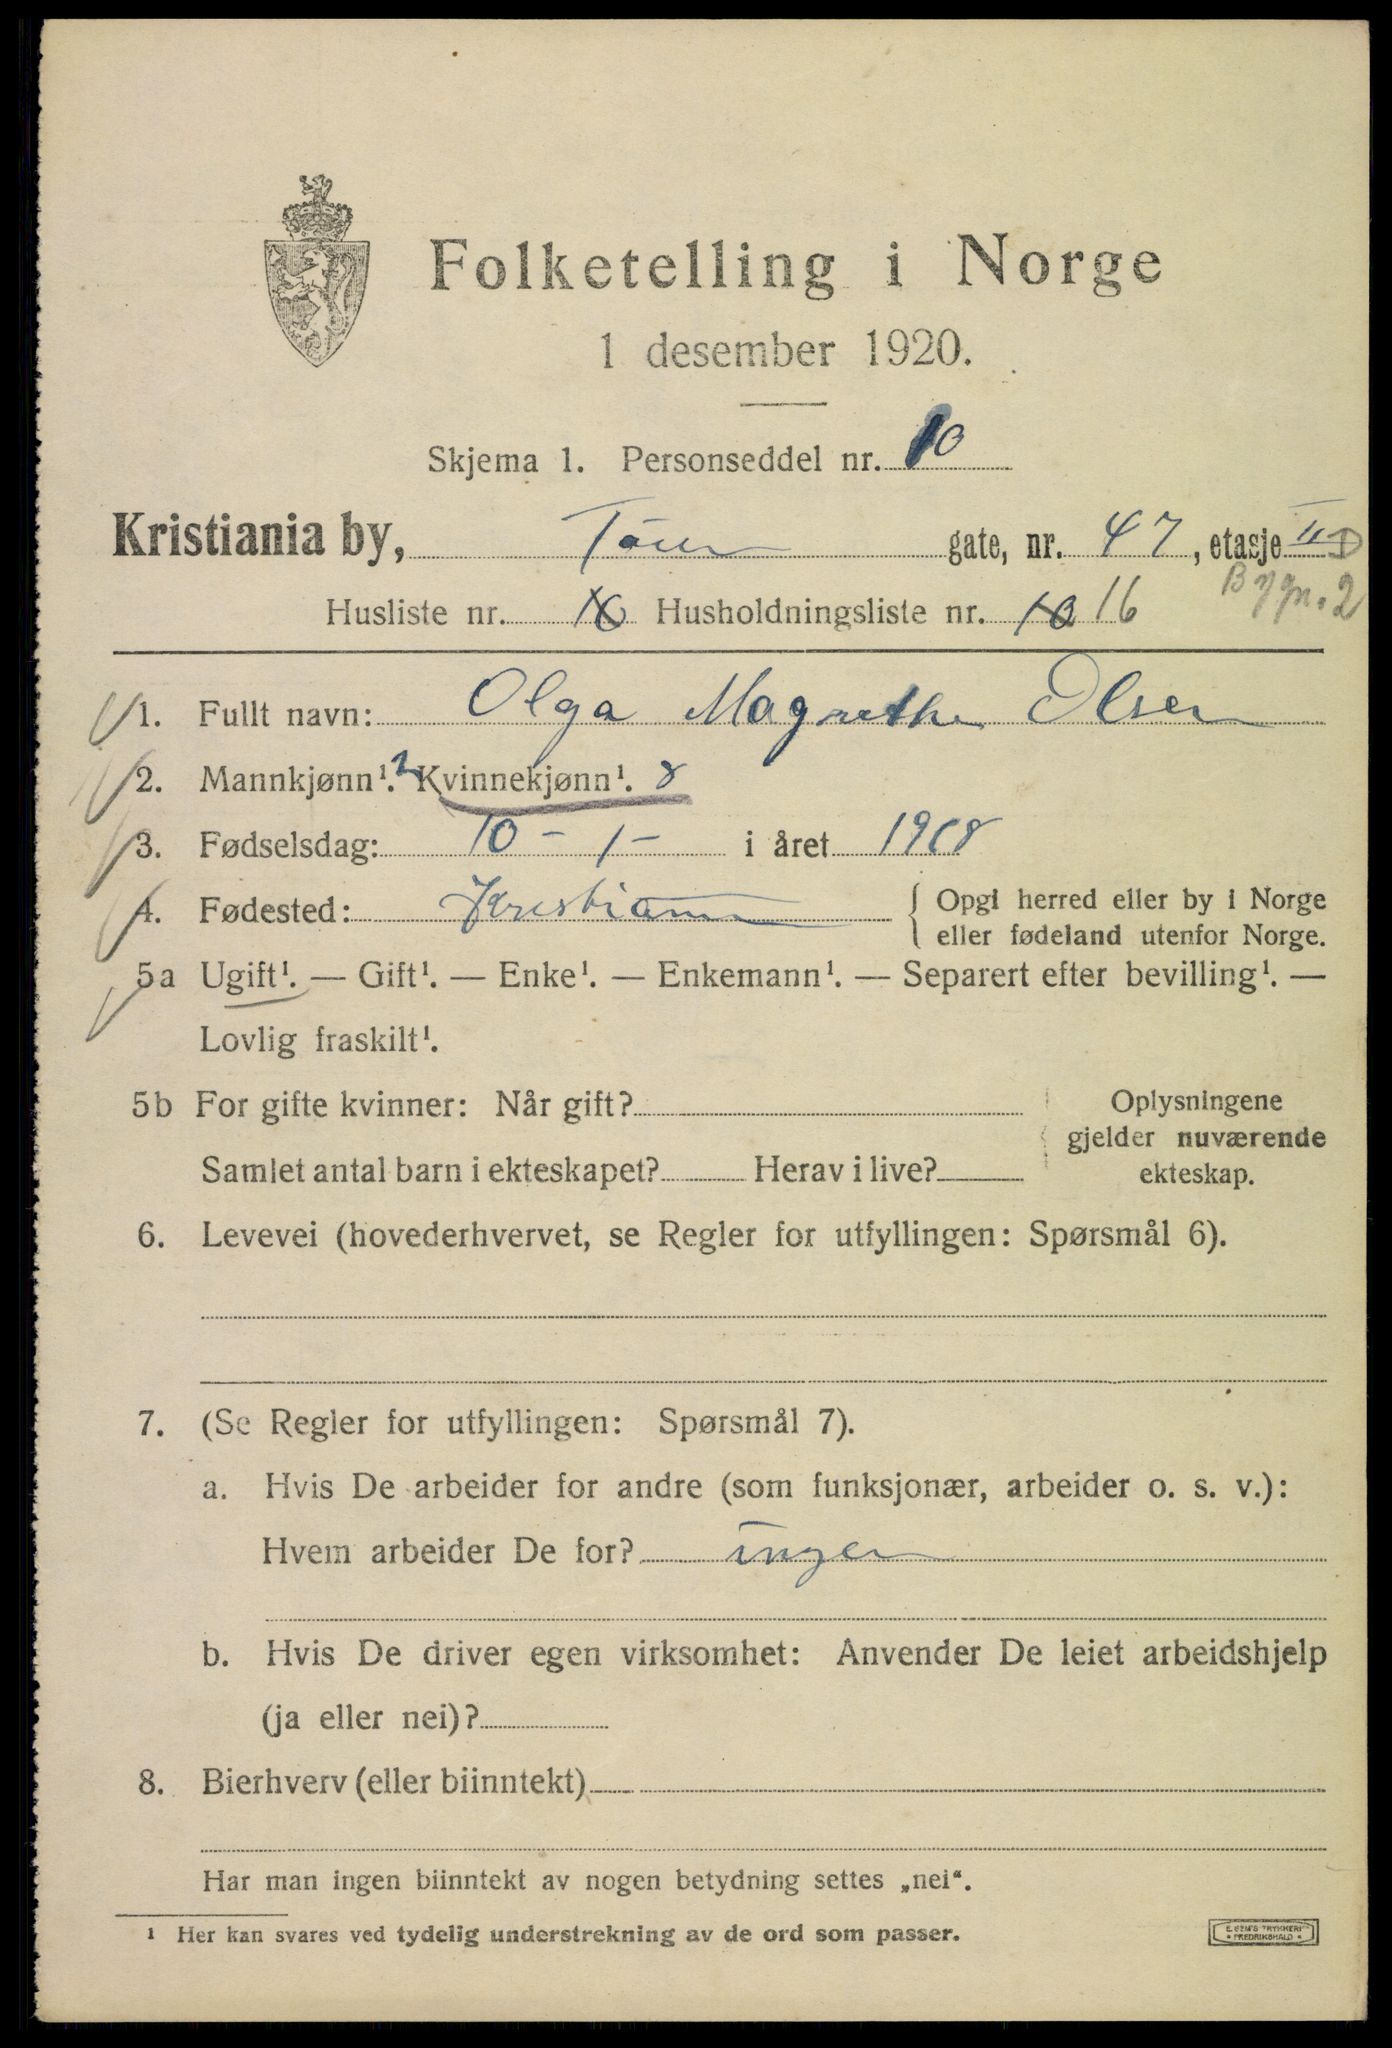 Folketelling i Norge
1 desember 1920.
Skjema 1. Personseddel nr. 10
Kristiania by, gate, nr. 47, etasje II
Bygn. 2
Husliste nr. Husholdningsliste nr. 10 16
1. Fullt navn: Olga Magrethe Olsen
2. Mannkjønn¹. Kvinnekjønn¹.
3. Fødselsdag: 10 - 1 - i året 1918
4. Fødested: Kristiania { Opgi herred eller by i Norge
eller fødeland utenfor Norge.
5a Ugift¹. — Gift¹. — Enke¹. — Enkemann¹. — Separert efter bevilling¹. —
Lovlig fraskilt¹.
5b For gifte kvinner: Når gift? Oplysningene
gjelder nuværende
Samlet antal barn i ekteskapet? Herav i live? ekteskap.
6. Levevei (hovederhvervet, se Regler for utfyllingen: Spørsmål 6).
7. (Se Regler for utfyllingen: Spørsmål 7).
a. Hvis De arbeider for andre (som funksjonær, arbeider o. s. v.):
Hvem arbeider De for? ingen
b. Hvis De driver egen virksomhet: Anvender De leiet arbeidshjelp
(ja eller nei)?
8. Bierhverv (eller biinntekt)
Har man ingen biinntekt av nogen betydning settes „nei“.
¹ Her kan svares ved tydelig understrekning av de ord som passer.
E. SEM'S TRYKKERI
FREDRIKSHALD